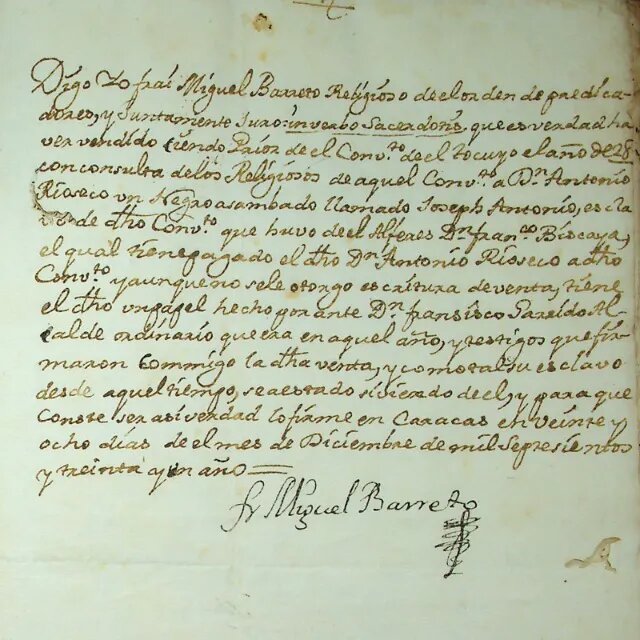 Digo Yo frai Miguel Barreto Religioso de el orden de predica-
dores, y Juntamente Juro: in verbo Sacerdotis, que es verdad ha-
ver vendido siendo Prior de el Conv.to de el tocuyo el año de 28
con consulta de los Religiosos de aquel Conv.to a Dn Antonio
Rioseco un Negro asambado llamado Joseph Antonio, escla-
vo de dho Conv.to que huvo de el Alferes Dn fran.co Biscaya,
el qual tiene pagado el dho Dn Antonio Rioseco a dho
Conv.to y aunque no se le otorgo escritura de venta, tiene
el dho un papel hecho por ante Dn fransisco Garsido Al-
calde ordinario que era en aquel año, y testigos que fir-
maron commigo la dha venta, y como tal su esclavo
desde aquel tiempo, se a estado sirviendo de el, y para que
Conste ser asi verdad lo firme en Caracas en veinte y
ocho dias de el mes de Diciembre de mil Septesientos
y treinta y un año =
fr Miguel Barreto